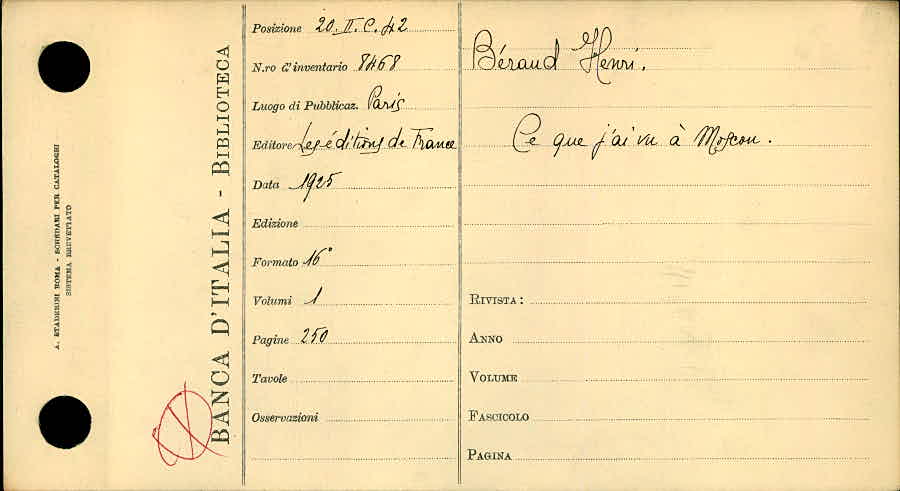 A. STADERINI ROMA - SCHEDARI PER CATALOGHI
SISTEMA BREVETTATO
BANCA D'ITALIA - BIBLIOTECA
Posizione 20.II.C.42
N.ro d'inventario 8468
Luogo di Pubblicaz. Paris
Editore Les éditions de France
Data 1925
Edizione
Formato 16°
Volumi 1
Pagine 250
Tavole
Osservazioni
Béraud Henri.
Ce que j'ai vu à Moscou.
RIVISTA:
ANNO
VOLUME
FASCICOLO
PAGINA